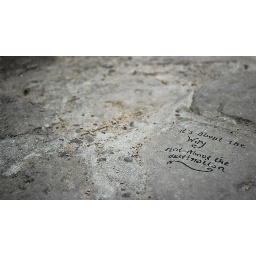 it's About the
way
not About the
destination